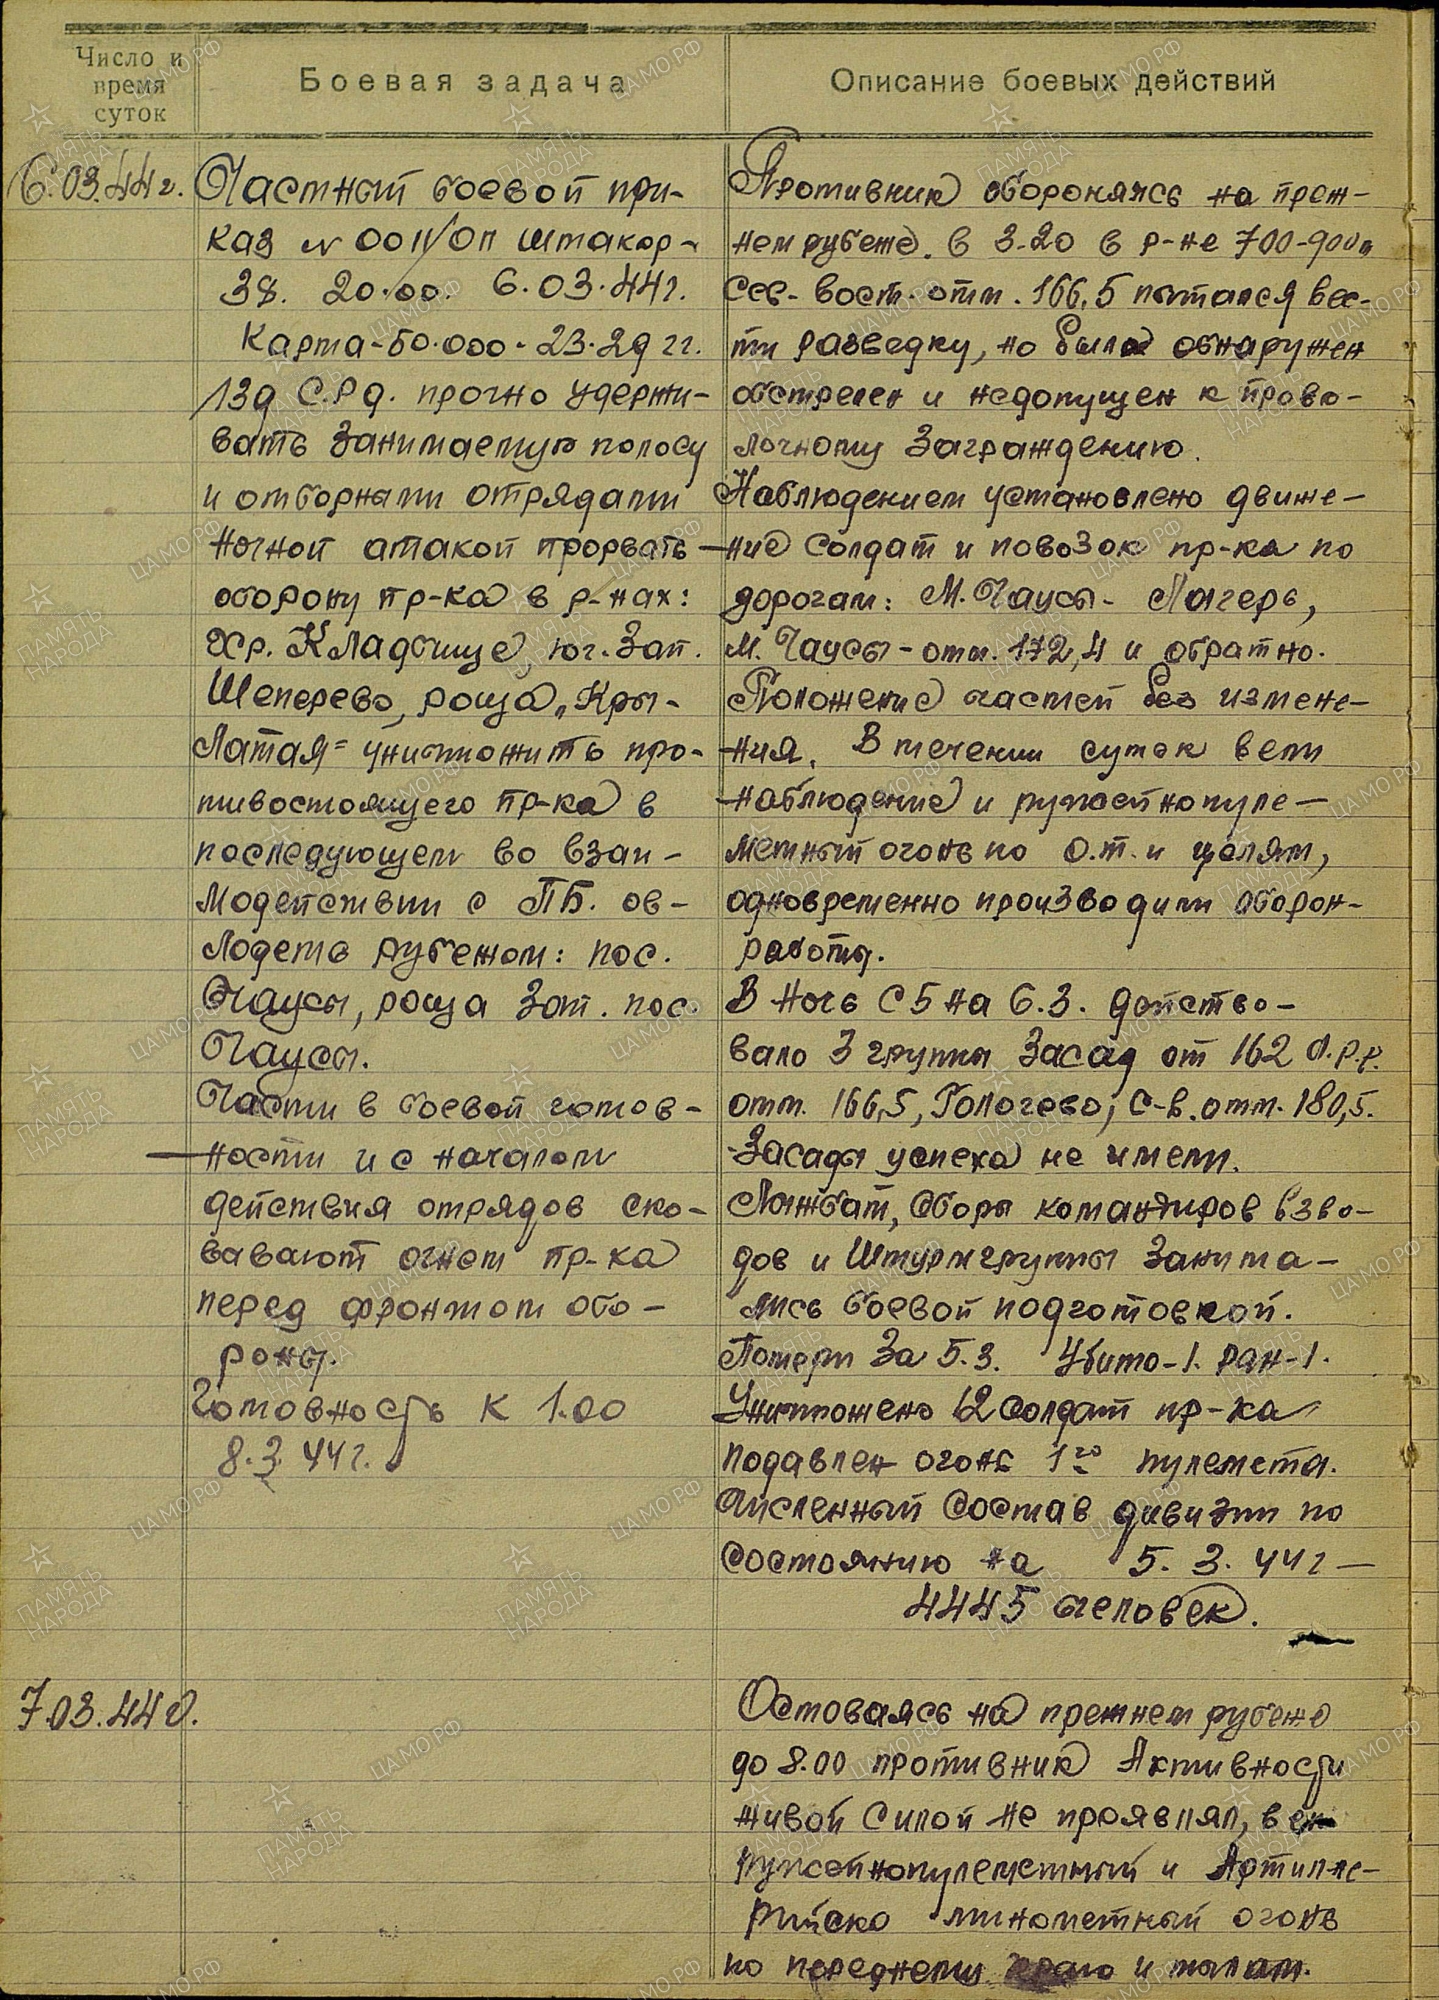 Число и
время
суток
Боевая задача
Описание боевых действий
6.03.44г.
Частный боевой при-
каз № 0011/ОП штакор-
38. 20.00. 6.03.44г.
Карта-50.000-23-29 гг.
139 С.Р д. прочно удержи-
вать занимаемую полосу
и отборными отрядами
ночной атакой прорвать
оборону пр-ка в р-нах:
Хр. Кладбище, юг. зап.
Шеперево, роща „Кры-
латая" уничтожить про-
тивостоящего пр-ка в
последующем во взаи-
модействии с ПБ. ов-
лодеть рубежом: пос.
Чаусы, роща зап. пос.
Чаусы.
Части в боевой готов-
ности и с началом
действия отрядов ско-
вавают огнем пр-ка
перед фронтом обо-
роны.
Готовность к 1.00
8.3. 44г.
Противник обороняясь на преж-
нем рубеже. в 3-20 в р-не 700-900м
сев-вост. отм. 166,5 пытался вес-
ти разведку, но был обнаружен
обстрелен и недопущен к прово-
лочному заграждению.
Наблюдением установлено движе-
ние солдат и повозок пр-ка по
дорогам: М. Чаусы - Лагерь,
М. Чаусы - отм. 172,4 и обратно.
Положение частей без измене-
ния. В течении суток вели
наблюдение и ружейнопуле-
метный огонь по о.т. и целям,
одновременно производили оборон-
работы.
В ночь с 5 на 6.3. действо-
вало 3 группы засад от 162 о.р.р.
отм. 166,5, Гологево, с-в. отм. 180,5.
Засады успеха не имели.
Лыжбат, сборы командиров взво-
дов и штурмгруппы занима-
лись боевой подготовкой.
Потери за 5.3. Убито-1. ран-1.
Уничтожено 12 солдат пр-ка
подавлен огонь 1го пулемета.
Численный состав дивизии по
состоянию на 5. 3. 44г -
4445 человек.
7.03.44г.
Остоваясь на прежнем рубеже
до 8.00 противник Активности
живой силой не проявлял, вел
ружейнопулеметный и Артилле-
рийско минометный огонь
по переднему краю и тылам.
ПАМЯТЬ
НАРОДА
ЦАМО.РФ